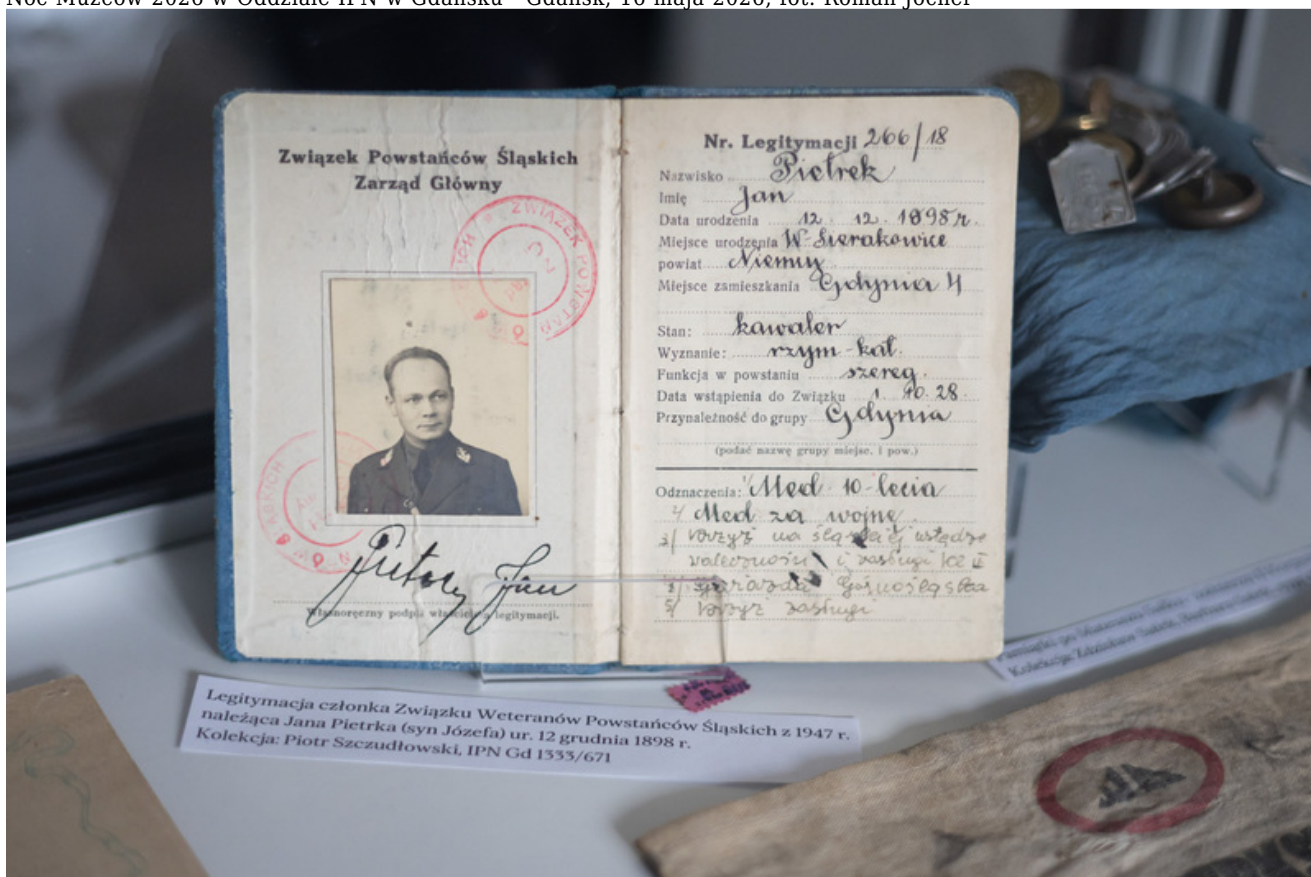 Noc Muzeów 2026 w Oddziale IPN w Gdańsku - Gdańsk, 16 maja 2026, fot. Roman Jocher
Związek Powstańców Śląskich
Zarząd Główny
ZWIĄZEK POWSTAŃ
Własnoręczny podpis właściciela legitymacji.
Nr. Legitymacji 266/18
Nazwisko Pietrek
Imię Jan
Data urodzenia 12. 12. 1898 r.
Miejsce urodzenia W. Sierakowice
powiat Niemcy
Miejsce zamieszkania Gdynia 4
Stan: kawaler
Wyznanie: rzym-kat.
Funkcja w powstaniu szereg.
Data wstąpienia do Związku 1. 10. 28.
Przynależność do grupy Gdynia
(podać nazwę grupy miejsc. i pow.)
Odznaczenia: Med 10-lecia
Med za wojnę
3/ krzyż na śląskiej wstędze
waleczności i zasługi kl II
gwiazda Górnośląska
5/ krzyż zasługi
Legitymacja członka Związku Weteranów Powstańców Śląskich z 1947 r.
należąca Jana Pietrka (syn Józefa) ur. 12 grudnia 1898 r.
Kolekcja: Piotr Szczudłowski, IPN Gd 1333/671